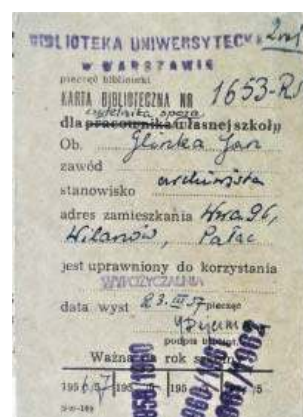 2 raj
BIBLIOTEKA UNIWERSYTECKA
W WARSZAWIE
pieczęć biblioteki
KARTA BIBLIOTECZNA NR 1653-RJ
czytelnika spoza
dla pracownika własnej szkoły
Ob. Glinka Jan
zawód
stanowisko archiwista
adres zamieszkania W-wa 96,
Wilanów, Pałac
jest uprawniony do korzystania
WYPOŻYCZALNIA
data wyst 23.III.57 pieczęć
podpis bibliot.
Ważna na rok
1956/7 195 /5 195 /5 195 /5